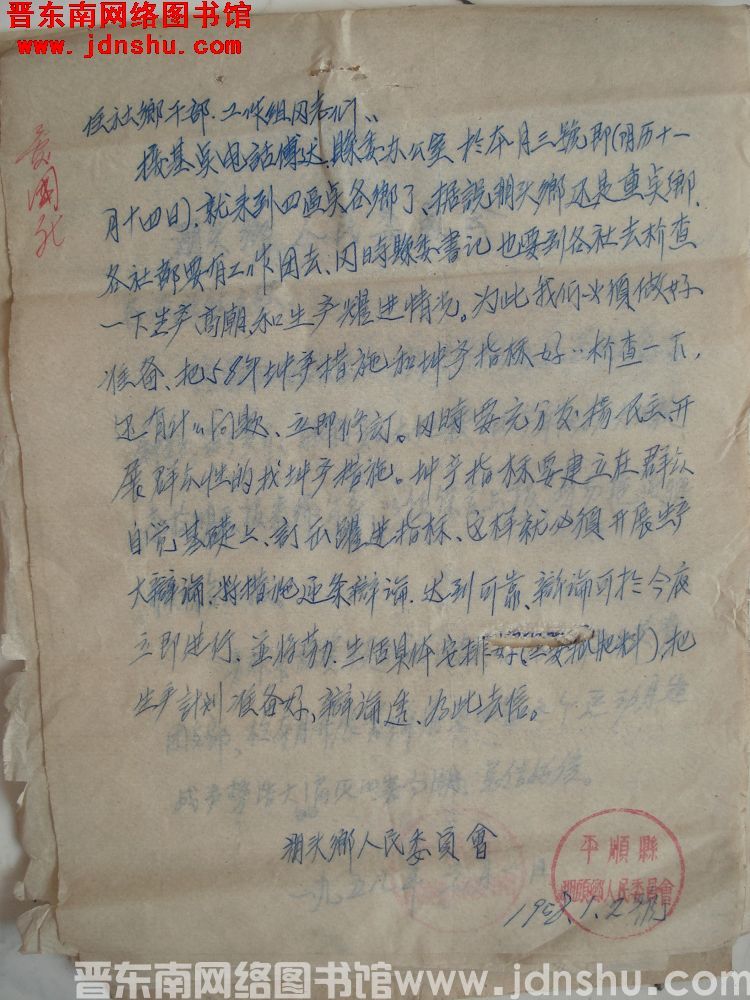 晋东南网络图书馆
www.jdnshu.com
住社鄉干部、工作組同志们:
接基点电話傳达,縣委办公室於本月三號即(阴历十一
月十四日),就来到四区点各鄉了、据說朋头鄉还是重点鄉、
各社都要有工作团去、同時縣委書记也要到各社去检查
一下生产高潮、和生产耀进情况。为此我们必須做好
准备、把58年增产措施和增产指标好〃检查一下,
还有什么问题、立即修訂。同時要充分发揚民主、开
展群众性的找增产措施。增产指标要建立在群众
自觉基礎上、訂出躍进指标、这样就必須开展生产
大辯論、将措施逐条辯論、达到可靠、辯論可於今夜
立即进行、並将劳力、生活具体安排好(主要肥料)、把
生产計划准备好、辯論透、为此去信。
朋头鄉人民委員會
平順縣
朋頭鄉人民委員會
1958.1.2號
晋东南网络图书馆 www.jdnshu.com